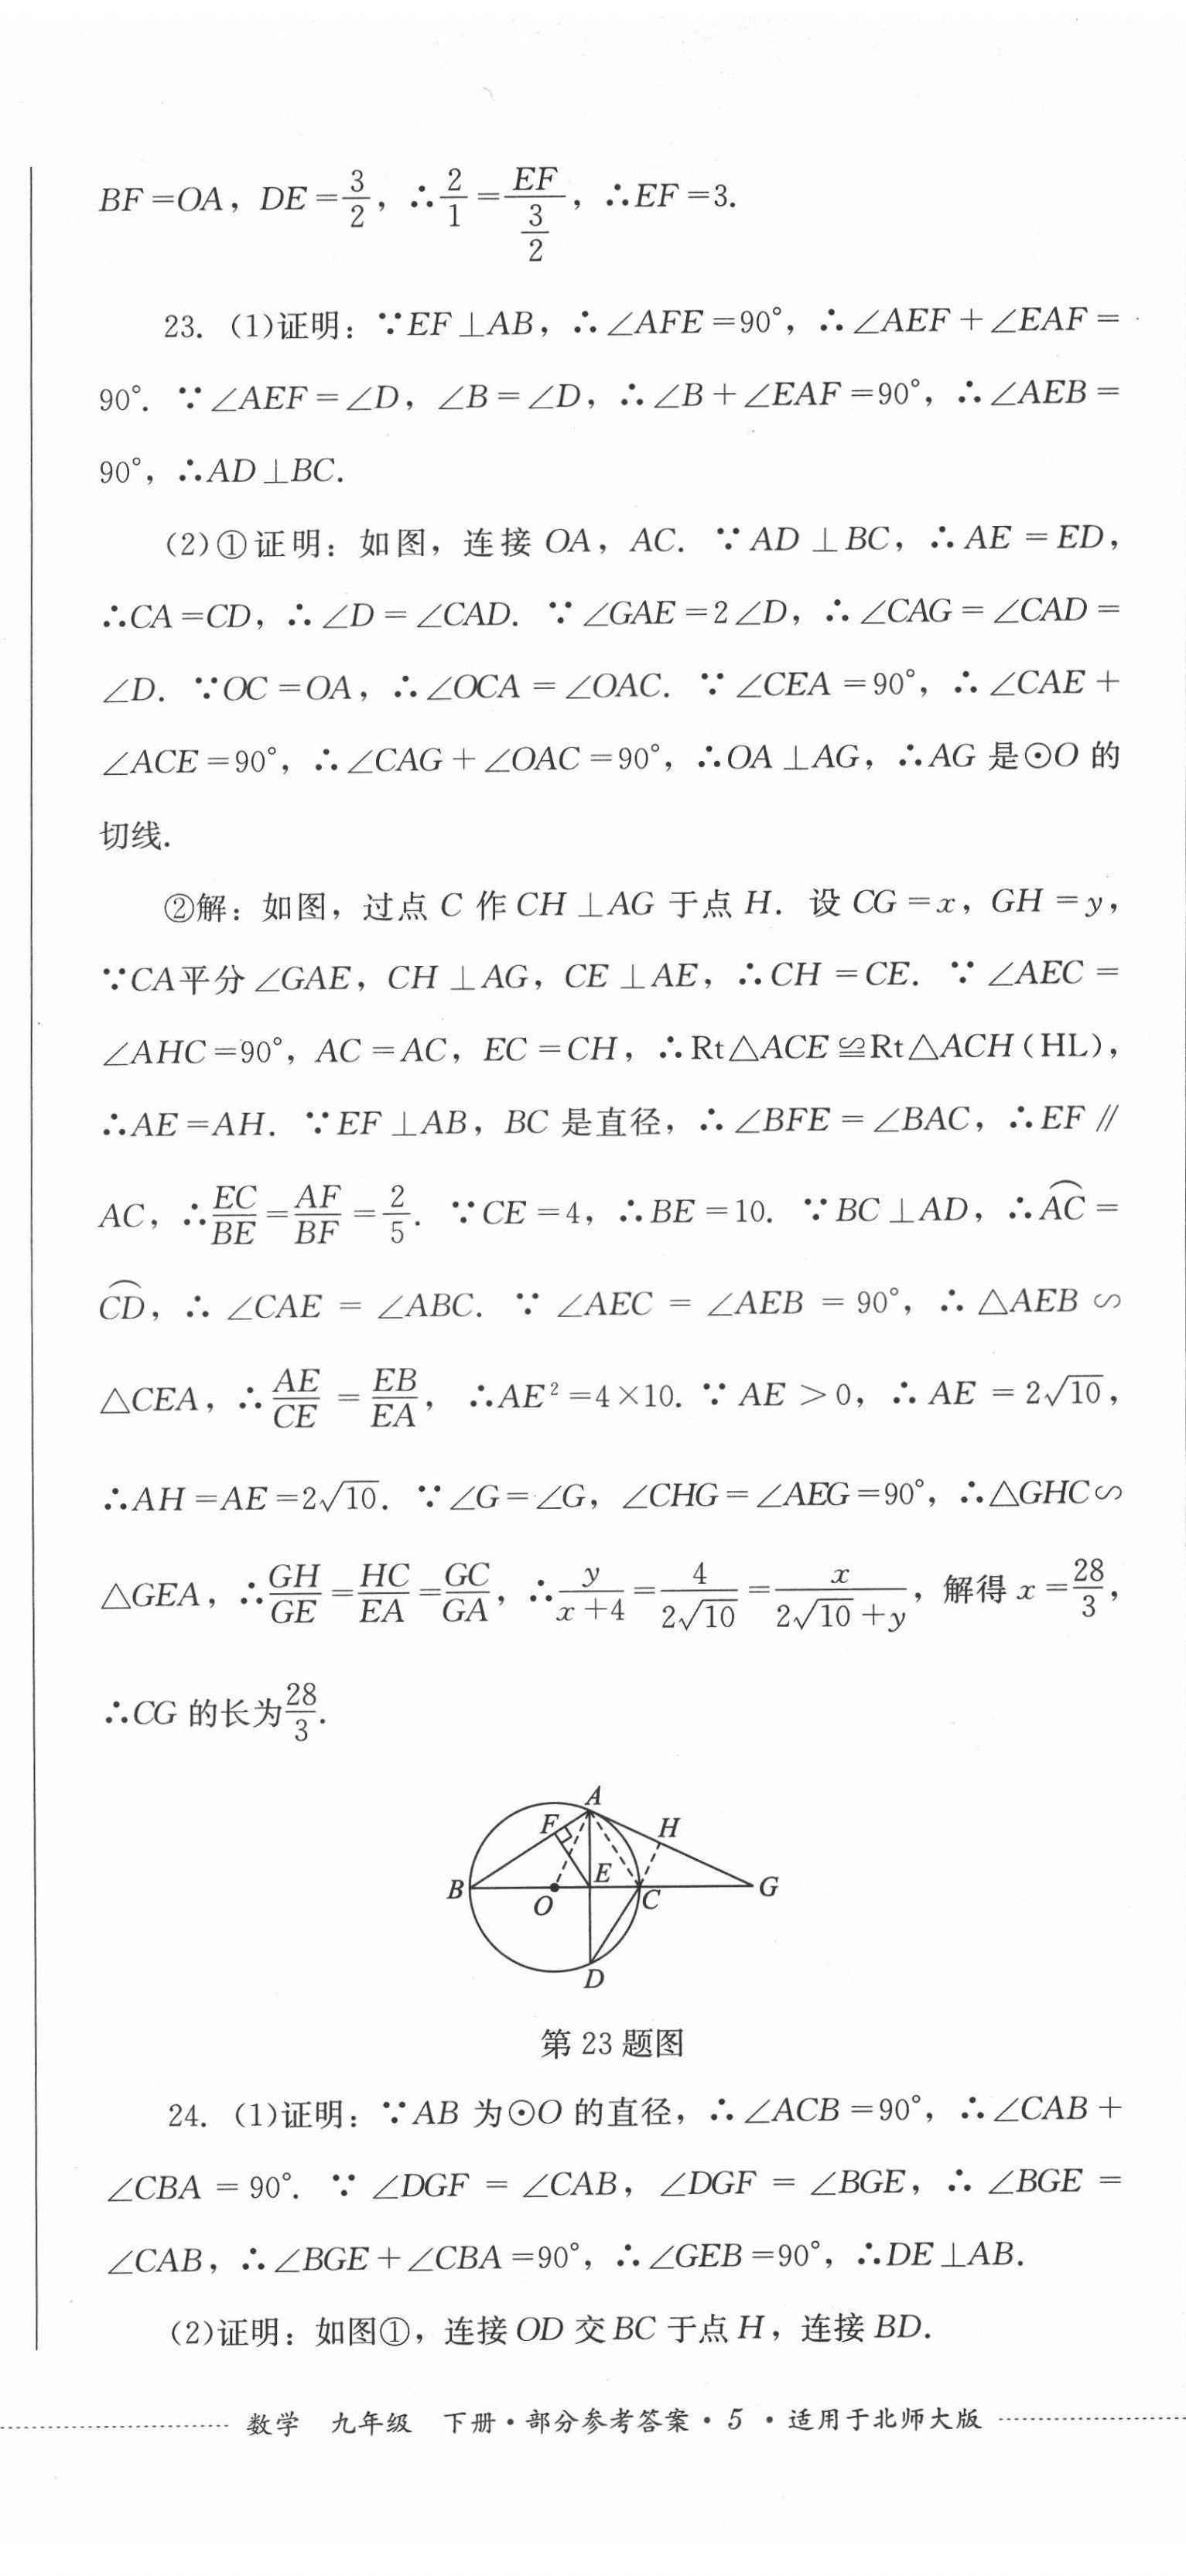 BF=OA，DE=3/2，∴2/1=EF/(3/2)，∴EF=3.
23. (1)证明：∵EF⊥AB，∴∠AFE=90°，∴∠AEF+∠EAF=
90°. ∵∠AEF=∠D，∠B=∠D，∴∠B+∠EAF=90°，∴∠AEB=
90°，∴AD⊥BC.
(2)①证明：如图，连接 OA，AC. ∵AD⊥BC，∴AE=ED，
∴CA=CD，∴∠D=∠CAD. ∵∠GAE=2∠D，∴∠CAG=∠CAD=
∠D. ∵OC=OA，∴∠OCA=∠OAC. ∵∠CEA=90°，∴∠CAE+
∠ACE=90°，∴∠CAG+∠OAC=90°，∴OA⊥AG，∴AG 是⊙O 的
切线.
②解：如图，过点 C 作 CH⊥AG 于点 H. 设 CG=x，GH=y，
∵CA平分∠GAE，CH⊥AG，CE⊥AE，∴CH=CE. ∵∠AEC=
∠AHC=90°，AC=AC，EC=CH，∴Rt△ACE≌Rt△ACH(HL)，
∴AE=AH. ∵EF⊥AB，BC 是直径，∴∠BFE=∠BAC，∴EF∥
AC，∴EC/BE=AF/BF=2/5. ∵CE=4，∴BE=10. ∵BC⊥AD，∴⌒AC=
⌒CD，∴∠CAE=∠ABC. ∵∠AEC=∠AEB=90°，∴△AEB∽
△CEA，∴AE/CE=EB/EA，∴AE²=4×10. ∵AE>0，∴AE=2√10，
∴AH=AE=2√10. ∵∠G=∠G，∠CHG=∠AEG=90°，∴△GHC∽
△GEA，∴GH/GE=HC/EA=GC/GA，∴y/(x+4)=4/(2√10)=x/(2√10+y)，解得 x=28/3，
∴CG 的长为28/3.
A
F
H
B
E
G
O
C
D
第 23 题图
24. (1)证明：∵AB 为⊙O 的直径，∴∠ACB=90°，∴∠CAB+
∠CBA=90°. ∵∠DGF=∠CAB，∠DGF=∠BGE，∴∠BGE=
∠CAB，∴∠BGE+∠CBA=90°，∴∠GEB=90°，∴DE⊥AB.
(2)证明：如图①，连接 OD 交 BC 于点 H，连接 BD.
数学 九年级 下册·部分参考答案·5·适用于北师大版